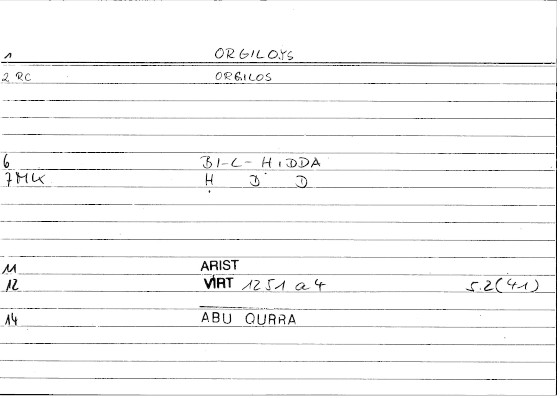 1 ORGILOYS
2 RC ORGILOS
6 BI-L-ḤIDDA
7 MK Ḥ D D
11 ARIST
12 VIRT 1251 a 4 5.2(41)
14 ABU QURRA